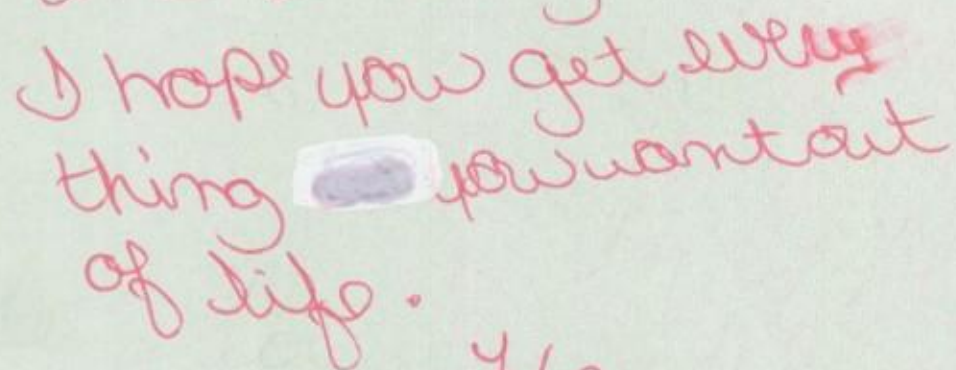 I hope you get every
thing you want out
of life.